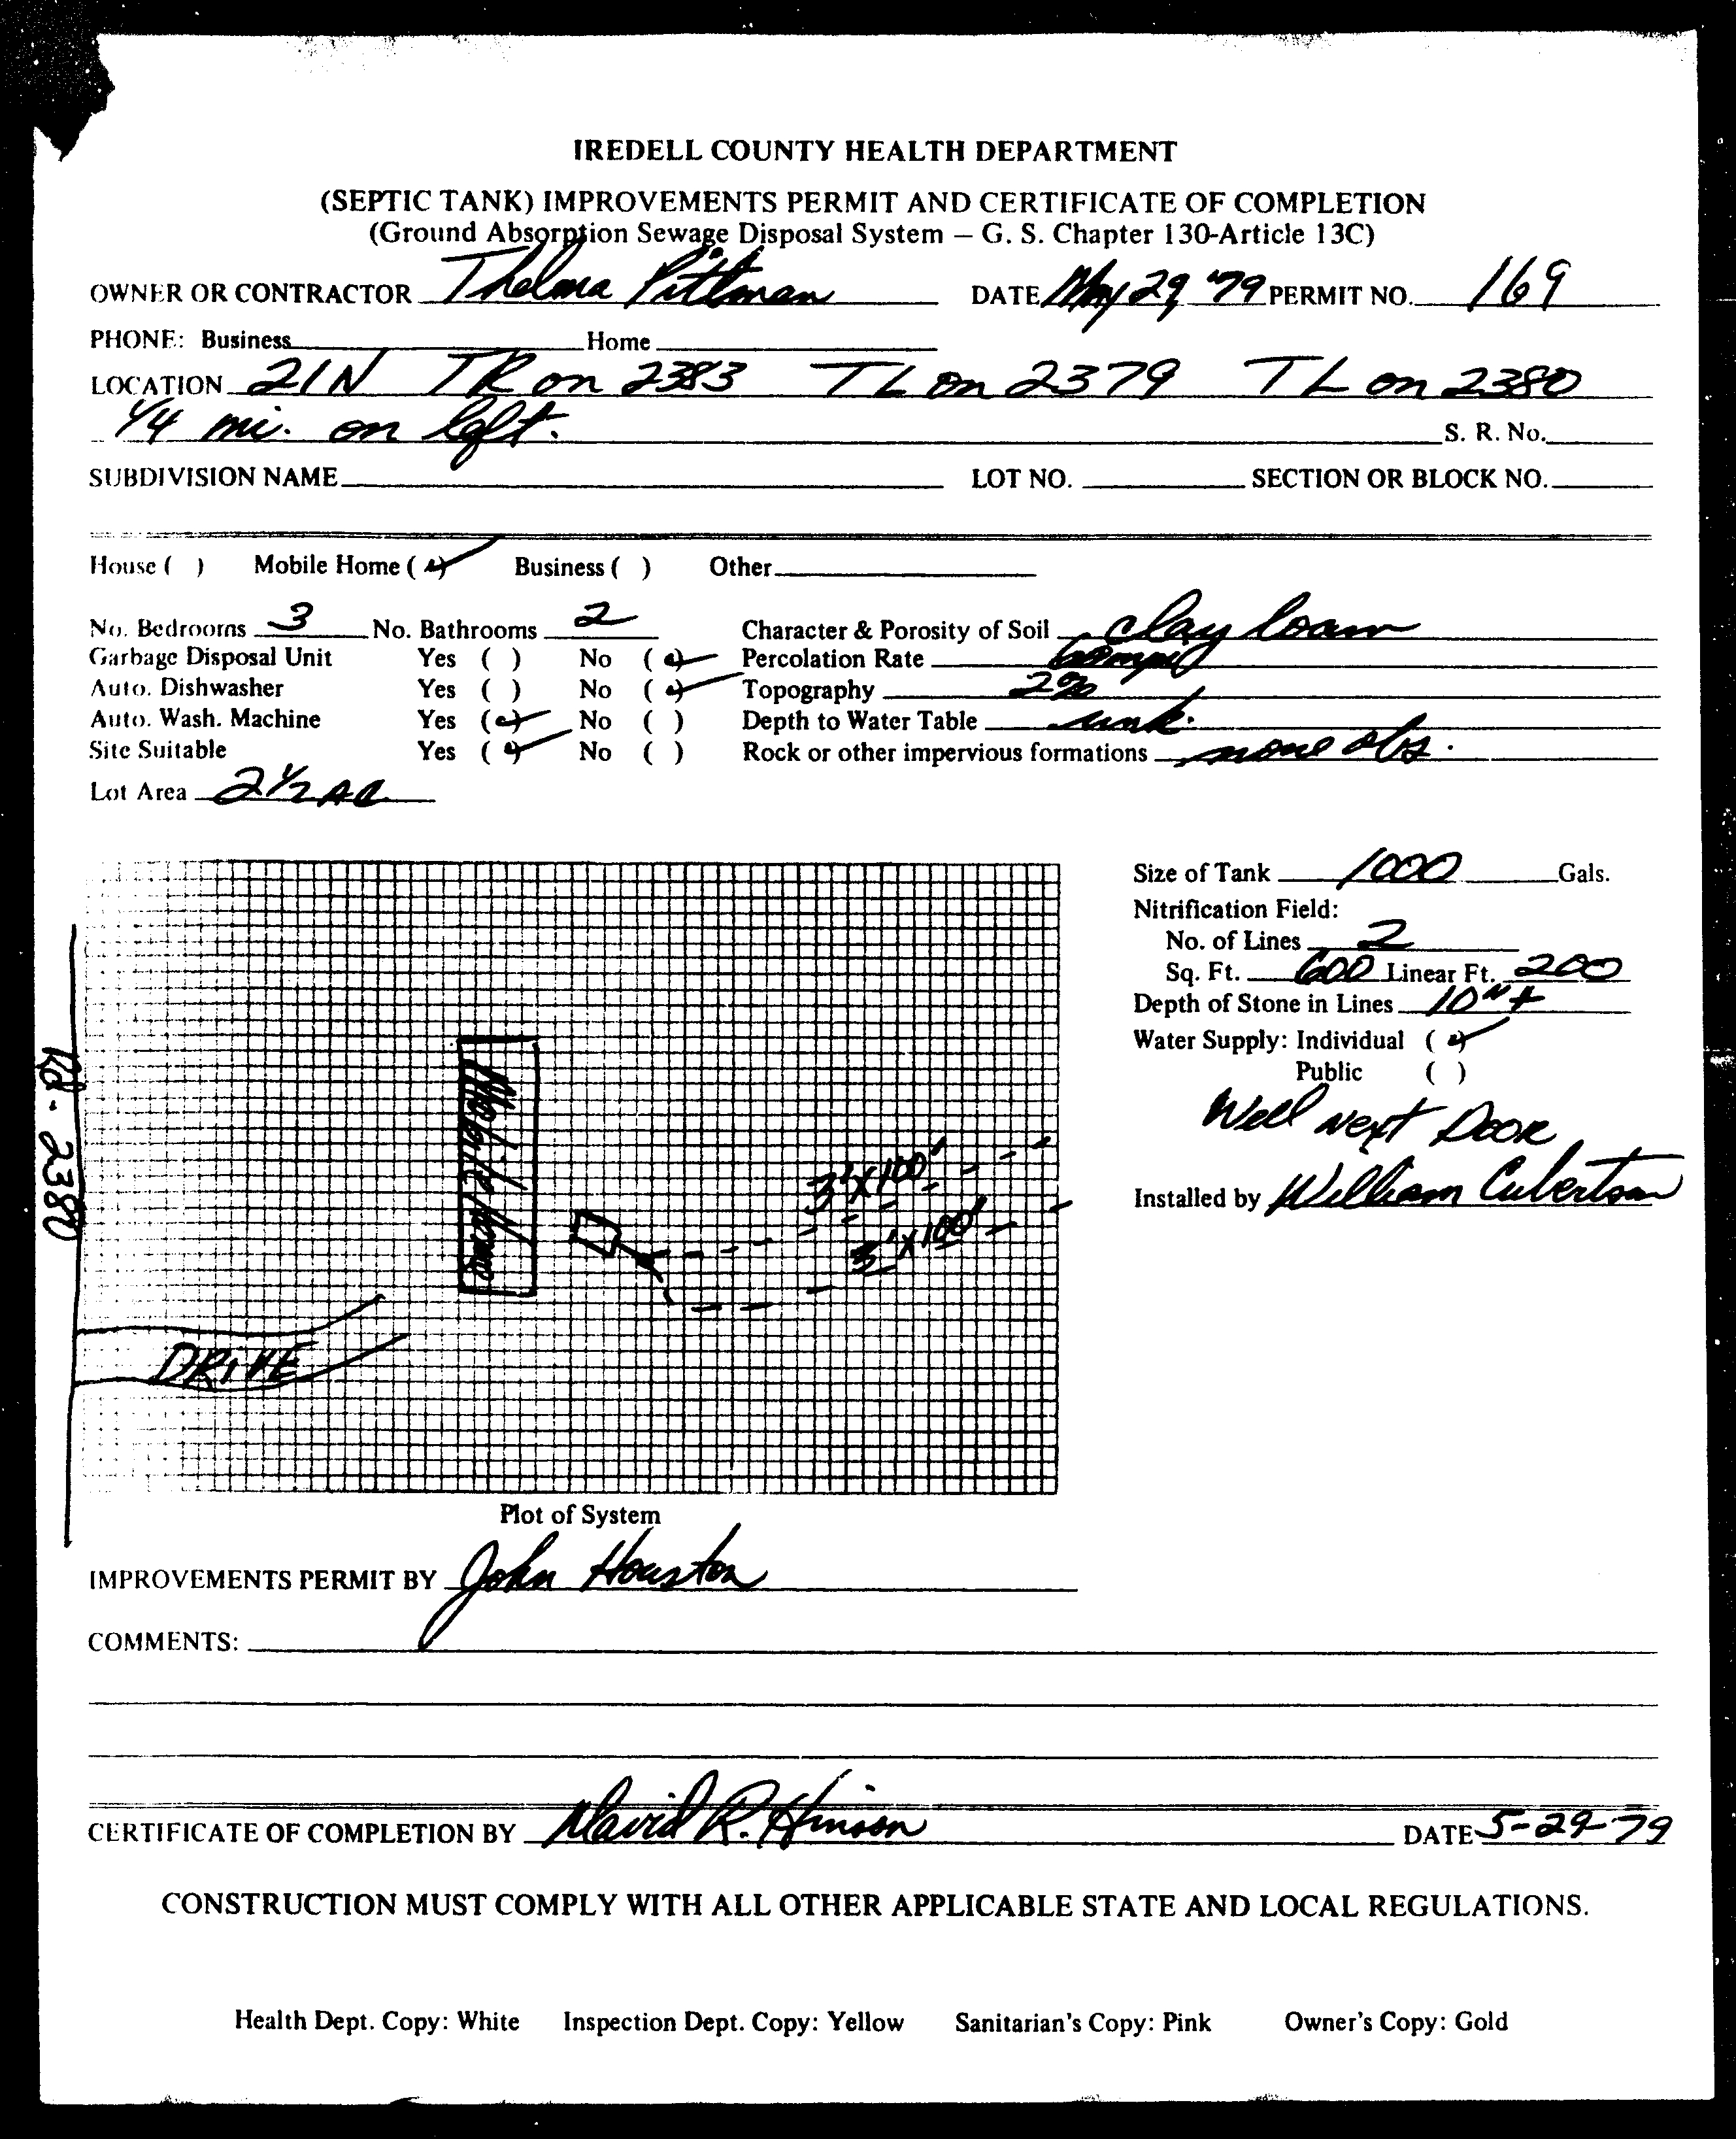 IREDELL COUNTY HEALTH DEPARTMENT
(SEPTIC TANK) IMPROVEMENTS PERMIT AND CERTIFICATE OF COMPLETION
(Ground Absorption Sewage Disposal System – G. S. Chapter 130-Article 13C)
OWNER OR CONTRACTOR Thelma Pittman DATE May 29, '79 PERMIT NO. 169
PHONE: Business Home
LOCATION 21N TR on 2383 TL on 2379 TL on 2380
1/4 mi. on left. S. R. No.
SUBDIVISION NAME LOT NO. SECTION OR BLOCK NO.
House ( ) Mobile Home (✓) Business ( ) Other
No. Bedrooms 3 No. Bathrooms 2 Character & Porosity of Soil clay loam
Garbage Disposal Unit Yes ( ) No (✓) Percolation Rate 60 mpi
Auto. Dishwasher Yes ( ) No (✓) Topography 2%
Auto. Wash. Machine Yes (✓) No ( ) Depth to Water Table unk.
Site Suitable Yes (✓) No ( ) Rock or other impervious formations none obs.
Lot Area 2 1/2 AC
Size of Tank 1000 Gals.
Nitrification Field:
No. of Lines 2
Sq. Ft. 600 Linear Ft. 200
Depth of Stone in Lines 10"+
Water Supply: Individual (✓)
Public ( )
Well Next Door
Installed by William Culbertson
Rd. 2380
Mobile Home
3'x100'
3'x100'
DRIVE
Plot of System
IMPROVEMENTS PERMIT BY John Houston
COMMENTS:
CERTIFICATE OF COMPLETION BY David R. Hinson DATE 5-29-79
CONSTRUCTION MUST COMPLY WITH ALL OTHER APPLICABLE STATE AND LOCAL REGULATIONS.
Health Dept. Copy: White Inspection Dept. Copy: Yellow Sanitarian's Copy: Pink Owner's Copy: Gold